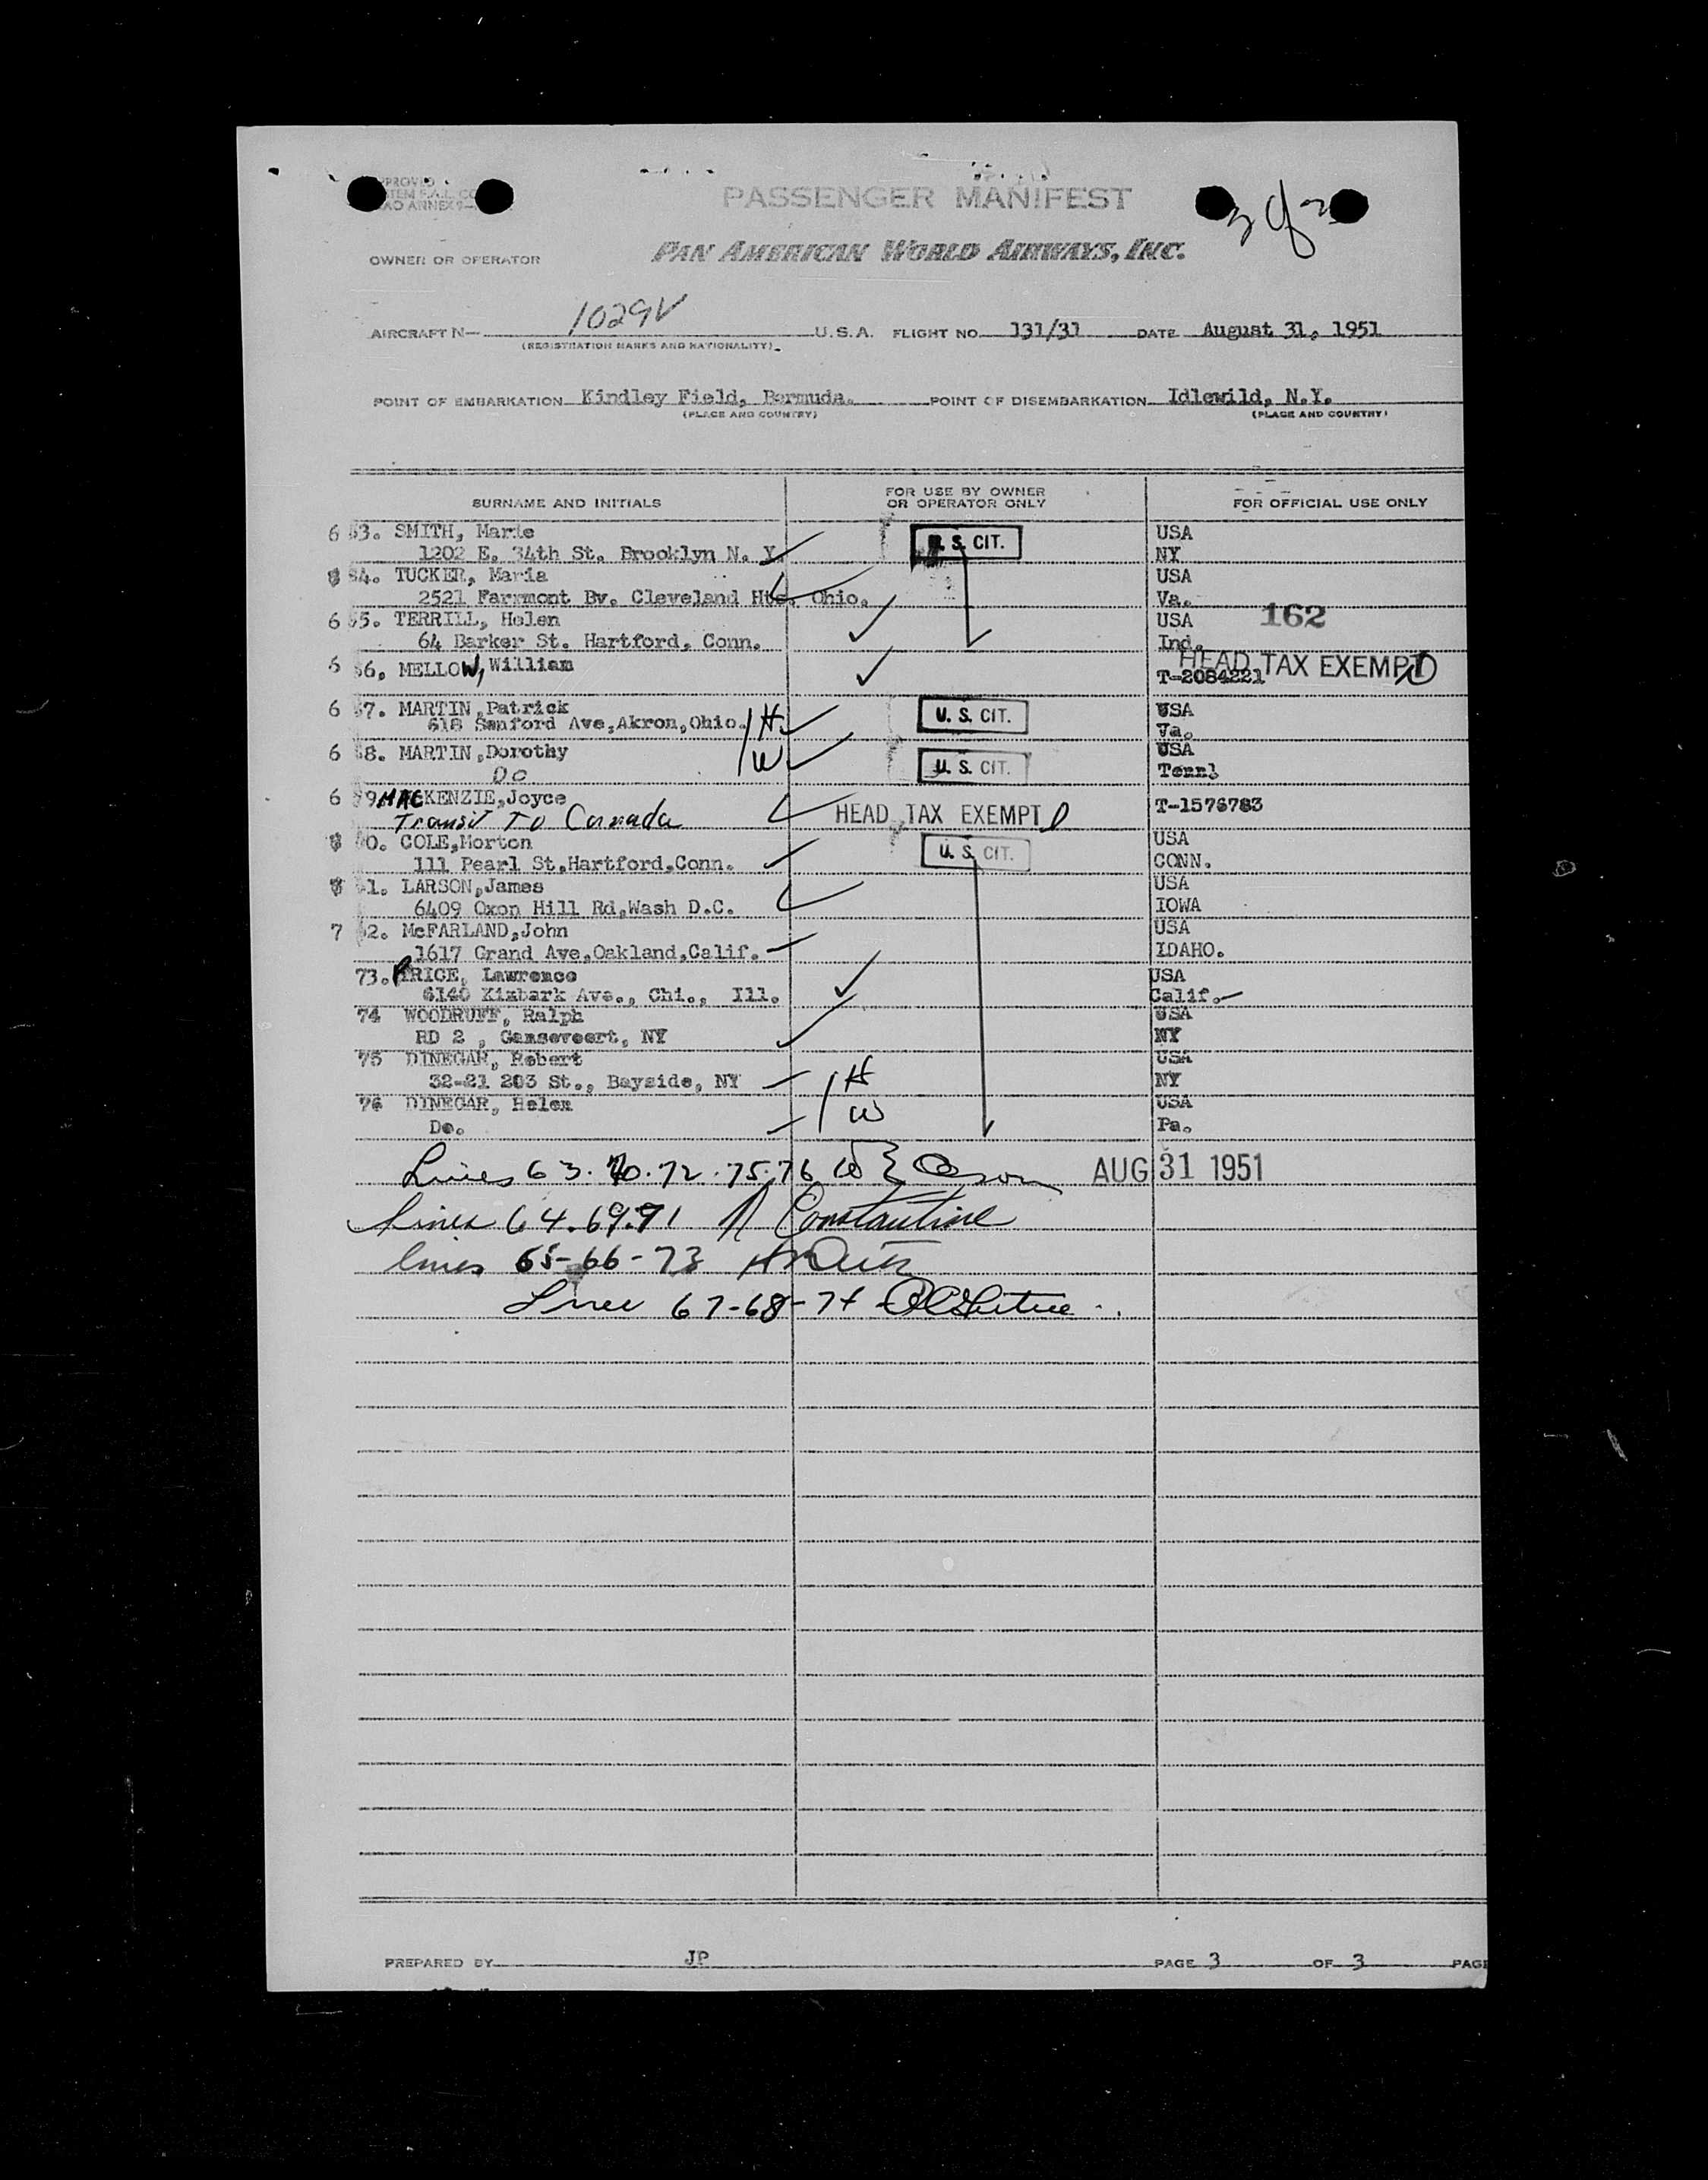 PASSENGER MANIFEST
3 of 3
PAN AMERICAN WORLD AIRWAYS, INC.
OWNER OR OPERATOR
AIRCRAFT N— 1029V U.S.A. FLIGHT NO. 131/31 DATE August 31, 1951
(REGISTRATION MARKS AND NATIONALITY)
POINT OF EMBARKATION Kindley Field, Bermuda. POINT OF DISEMBARKATION Idlewild, N.Y.
(PLACE AND COUNTRY) (PLACE AND COUNTRY)
SURNAME AND INITIALS FOR USE BY OWNER OR OPERATOR ONLY FOR OFFICIAL USE ONLY
63. SMITH, Marie U. S. CIT. USA
1202 E. 34th St. Brooklyn N. Y. NY
64. TUCKER, Maria USA
2521 Farmont Bv. Cleveland Hts. Ohio. Va.
65. TERRILL, Helen USA 162
64 Barker St. Hartford, Conn. Ind.
66. MELLOW, William T-2084221 HEAD TAX EXEMPT
67. MARTIN,Patrick H U. S. CIT. USA
618 Sanford Ave,Akron,Ohio. Va.
68. MARTIN,Dorothy W U. S. CIT. USA
DO
69 MACKENZIE,Joyce HEAD TAX EXEMPT T-1576783
Transit To Canada
70. COLE,Morton U. S. CIT. USA
111 Pearl St,Hartford,Conn. CONN.
71. LARSON,James USA
6409 Oxon Hill Rd,Wash D.C. IOWA
72. McFARLAND,John USA
1617 Grand Ave,Oakland,Calif. IDAHO.
73. PRICE, Lawrence USA
6140 Kimbark Ave., Chi., Ill. Calif.
74 WOODRUFF, Ralph USA
RD 2 , Gansevoort, NY NY
75 DINEGAR, Robert H USA
32-21 203 St., Bayside, NY NY
76 DINEGAR, Helen W USA
Do. Pa.
Lines 63. 70. 72. 75. 76 AUG 31 1951
Lines 64. 69. 71 Constantine
lines 65-66-73
Lines 67-68-74
PREPARED BY JP PAGE 3 OF 3 PAGE